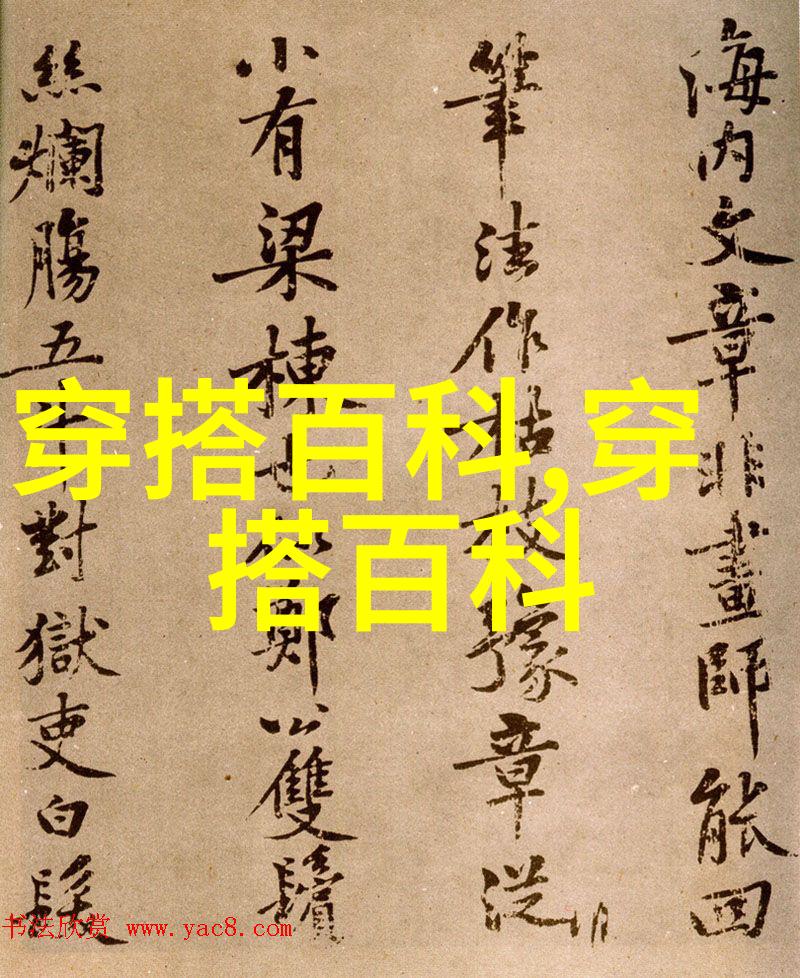 海内文章非畫師能回
筆法作枯枝豫章従
小有梁棟也鄭公雙鬢
絲爛腸五斗對獄吏白髮
穿搭百科,穿
搭百科
书法欣赏 www.yac8.com